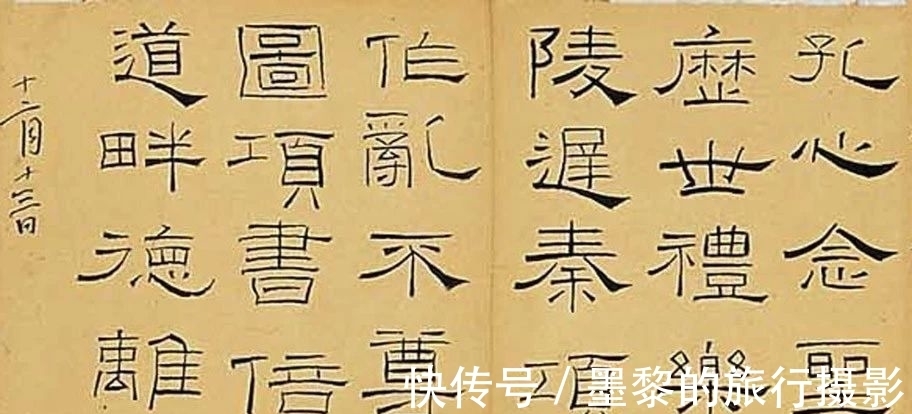 孔心念
歷世禮樂
陵遲秦項
作亂不尊
圖項書倍
道畔德離
十二月十三日
快传号 / 墨黎的旅行摄影